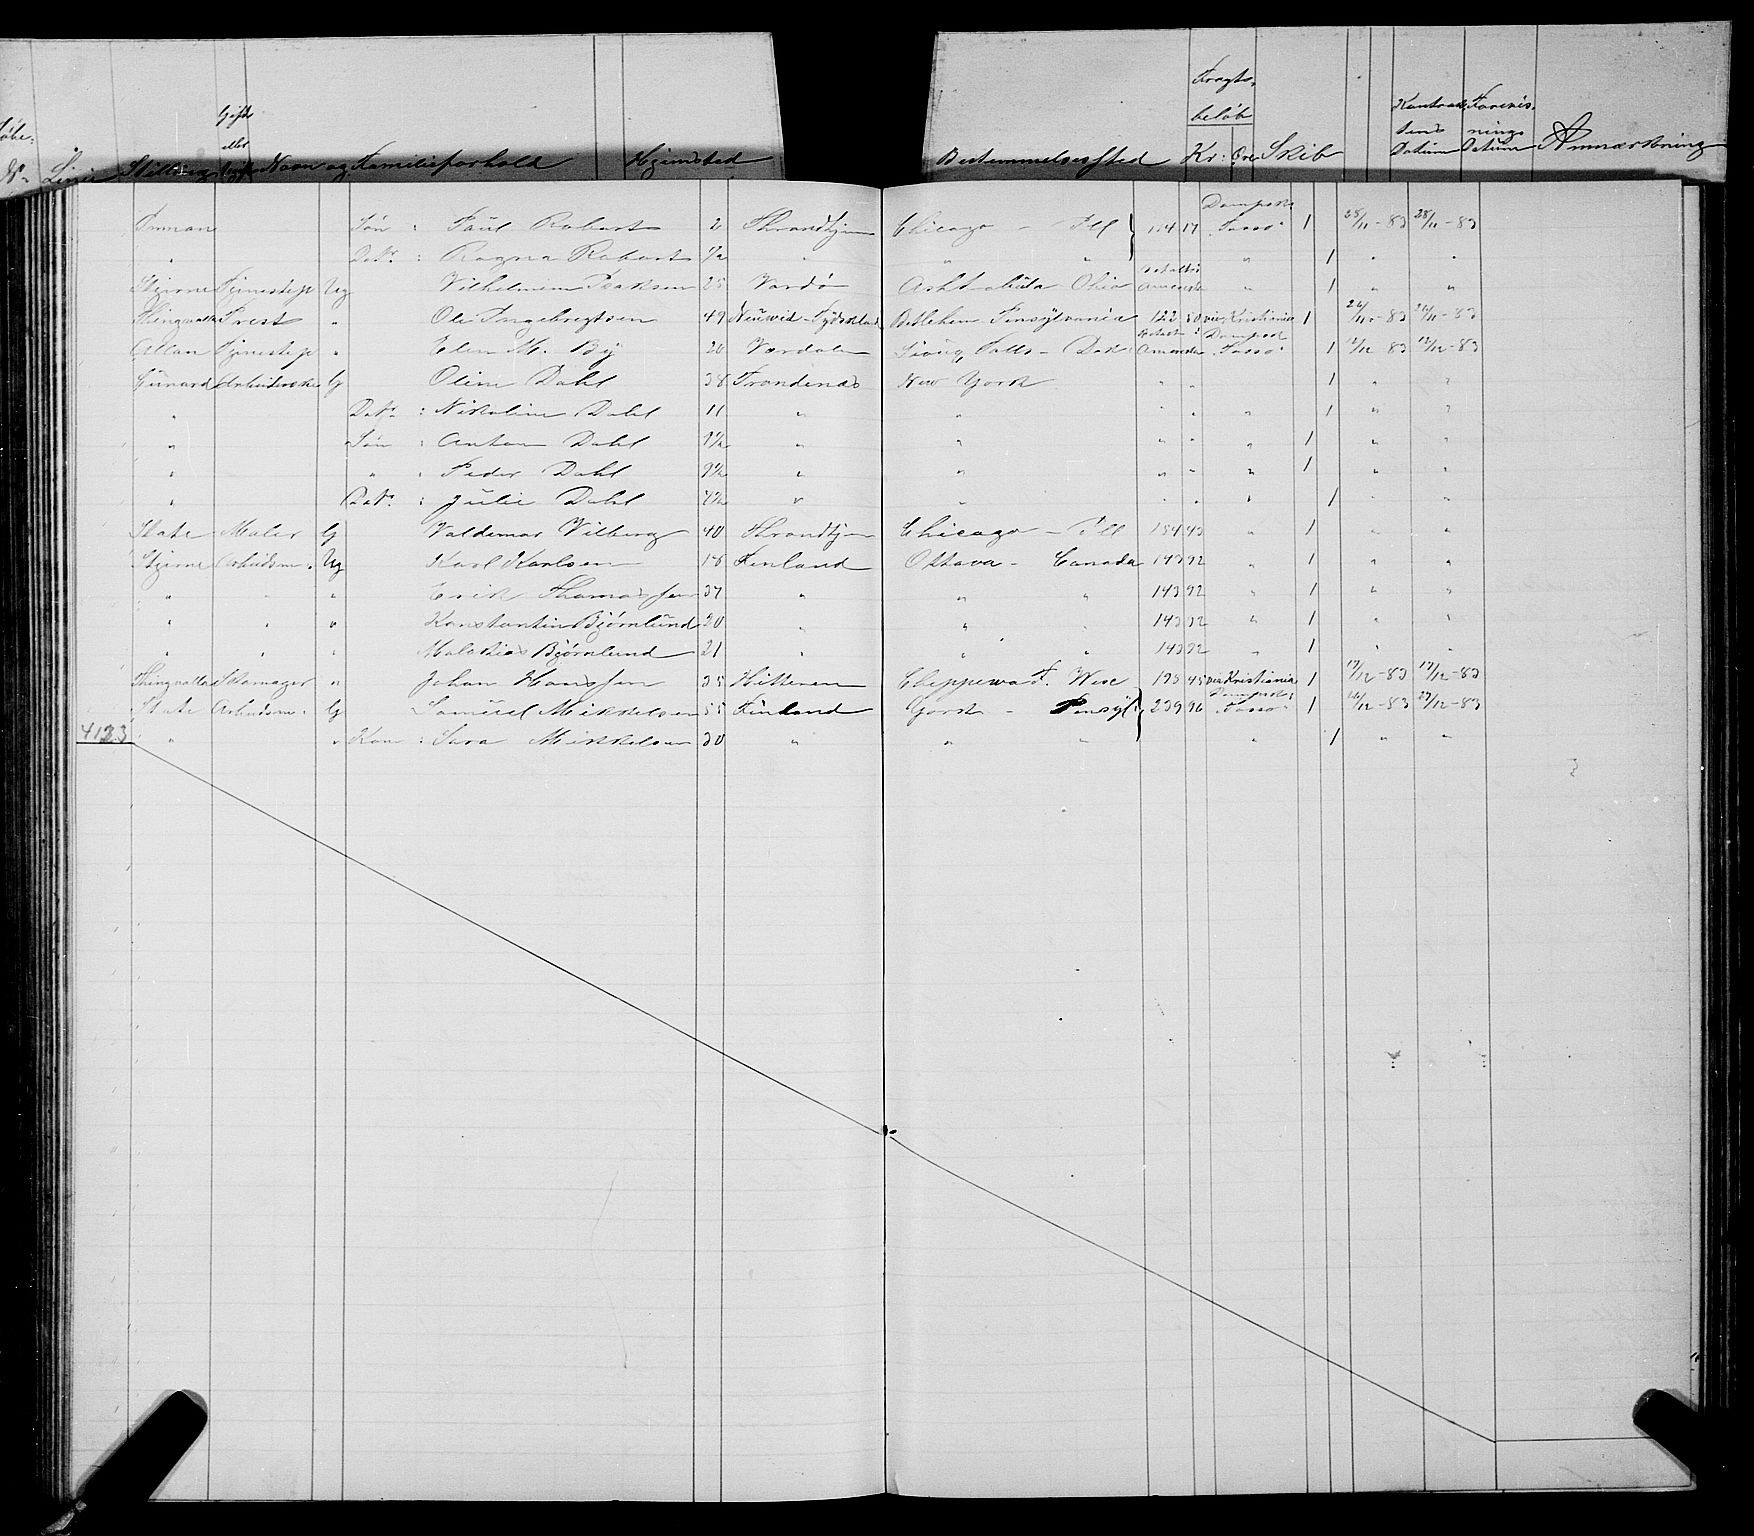 Løbe- Gifte Fragt- Kontrak- Forevis-
eller beløb tens nings
N. Linie Stilling Ugift Navn og Familieforhold Hjemsted Bestemmelsessted Kr: Øre Skib Datum Datum Anmærkning
Inman Søn : Paul Robart 2 Throndhjem Chicago - Ill 114 17 Dampsk "Tasso" 1 28/11 - 83 28/11 - 83
" Datr : Ragna Robart 1/2 " " " " 1 " "
Stjerne Tjenestep Ug Vilhelmine Isaksen 25 Vardø Ashtabula Ohio betalt i Amerika " 1 " "
Thingvalla Prest " Ole Ingebregtsen 49 Neuwid - Tydskland Betlehem Pensylvania 122 80 via Kristiania 1 26/11 - 83 26/11 - 83
Allan Tjenestep " Elen M. By 20 Værdalen Sioux Falls - Dak: betalt i Amerika Dampsk "Tasso" 1 12/12 83 12/12 - 83
Cunard Arbeiderske G Oline Dahl 38 Trondenæs New York " " 1 " "
" Datr : Nikoline Dahl 11 " " " " " 1 " "
" Søn : Anton Dahl 9 1/2 " " " " " 1 " "
" " : Peder Dahl 9 1/2 " " " " " 1 " "
" Datr : Julie Dahl 4 1/2 " " " " " 1 " "
State Maler G Valdemar Vilberg 40 Throndhjem Chicago - Ill 184 43 " 1 " "
Stjerne Arbeidsm. Ug Karl Karlsen 18 Finland Ottava - Canada 143 92 " 1 " "
" " " Erik Thomassen 37 " " " 143 92 " 1 " "
" " " Konstantin Bjørnlund 20 " " " 143 92 " 1 " "
" " " Bjørnlund 21 " " " 143 92 " 1 " "
Thingvalla Skomager " Johan Hanssen 35 Hitteren Cheppewa F. Wisc 195 45 via Kristiania 1 17/12 - 83 17/12 - 83
State Arbeidsm. G Samuel Mikkelsen 55 Finland York - Pensyl. 239 96 Dampsk "Tasso" 1 26/12 - 83 27/12 - 83
4123 " " Kon : Sara Mikkelsen 30 " " " " 1 " "